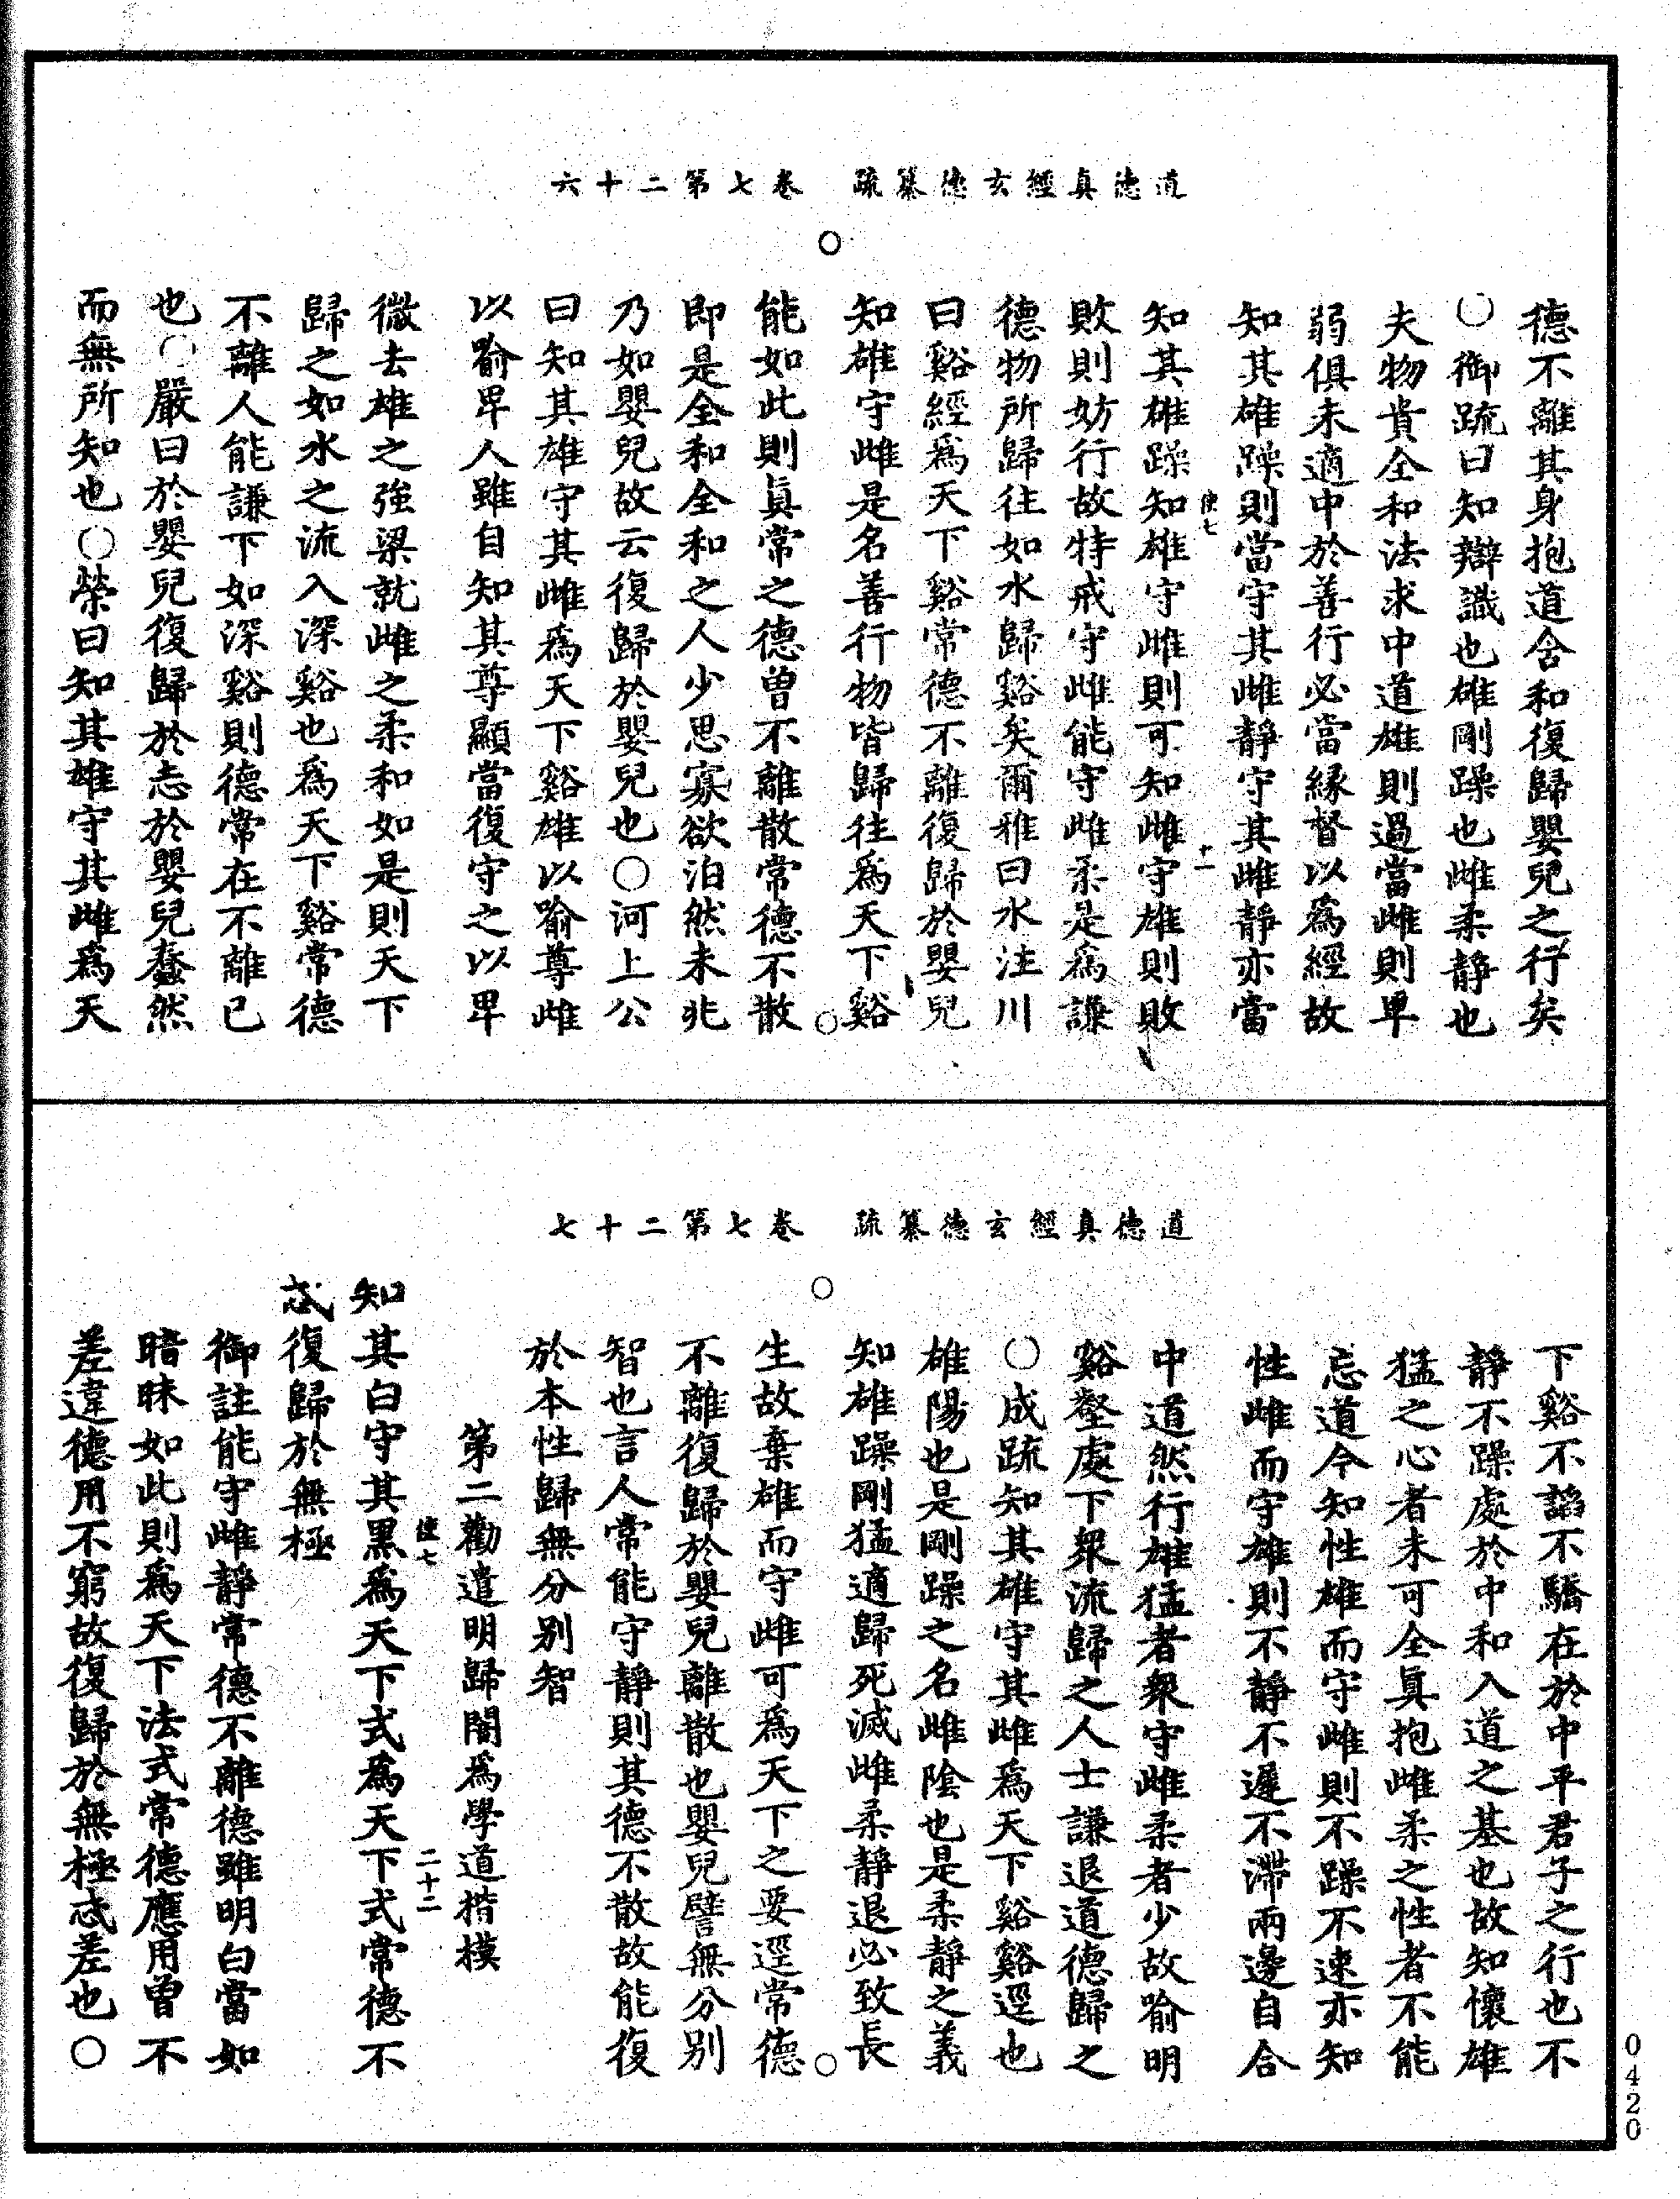 道德真經玄德纂疏　卷七第二十六
德不離其身抱道含和復歸嬰兒之行矣
○御疏曰知辯識也雄剛躁也雌柔靜也
夫物貴全和法求中道雄則過當雌則卑
弱俱未適中於善行必當緣督以為經故
知其雄躁則當守其雌靜守其雌靜亦當
使七
十一
知其雄躁知雄守雌則可知雌守雄則敗
敗則妨行故特戒守雌能守雌柔是為謙
德物所歸往如水歸谿矣爾雅曰水注川
曰谿經為天下谿常德不離復歸於嬰兒
知雄守雌是名善行物皆歸往為天下谿
能如此則真常之德曾不離散常德不散
即是全和全和之人少思寡欲泊然未兆
乃如嬰兒故云復歸於嬰兒也○河上公
曰知其雄守其雌為天下谿雄以喻尊雌
以喻卑人雖自知其尊顯當復守之以卑
微去雄之強梁就雌之柔和如是則天下
歸之如水之流入深谿也為天下谿常德
不離人能謙下如深谿則德常在不離己
也○嚴曰於嬰兒復歸於志於嬰兒蠢然
而無所知也○榮曰知其雄守其雌為天
道德真經玄德纂疏　卷七第二十七
下谿不諂不驕在於中平君子之行也不
靜不躁處於中和入道之基也故知懷雄
猛之心者未可全真抱雌柔之性者不能
忘道今知性雄而守雌則不躁不速亦知
性雌而守雄則不靜不遲不滯兩邊自合
中道然行雄猛者衆守雌柔者少故喻明
谿壑處下衆流歸之人士謙退道德歸之
○成疏知其雄守其雌為天下谿谿逕也
雄陽也是剛躁之名雌陰也是柔靜之義
知雄躁剛猛適歸死滅雌柔靜退必致長
生故棄雄而守雌可為天下之要逕常德
不離復歸於嬰兒離散也嬰兒譬無分別
智也言人常能守靜則其德不散故能復
於本性歸無分別智
第二勸遣明歸闇為學道揩模
使七
二十二
知其白守其黑為天下式為天下式常德不
忒復歸於無極
御註能守雌靜常德不離德雖明白當如
暗昧如此則為天下法式常德應用曾不
差違德用不窮故復歸於無極忒差也○
0420